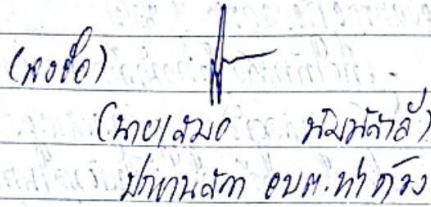 (ลงชื่อ)
(นายเสมอ พิมพ์สาลี)
ประธานสภา อบต.ท่าด้วง